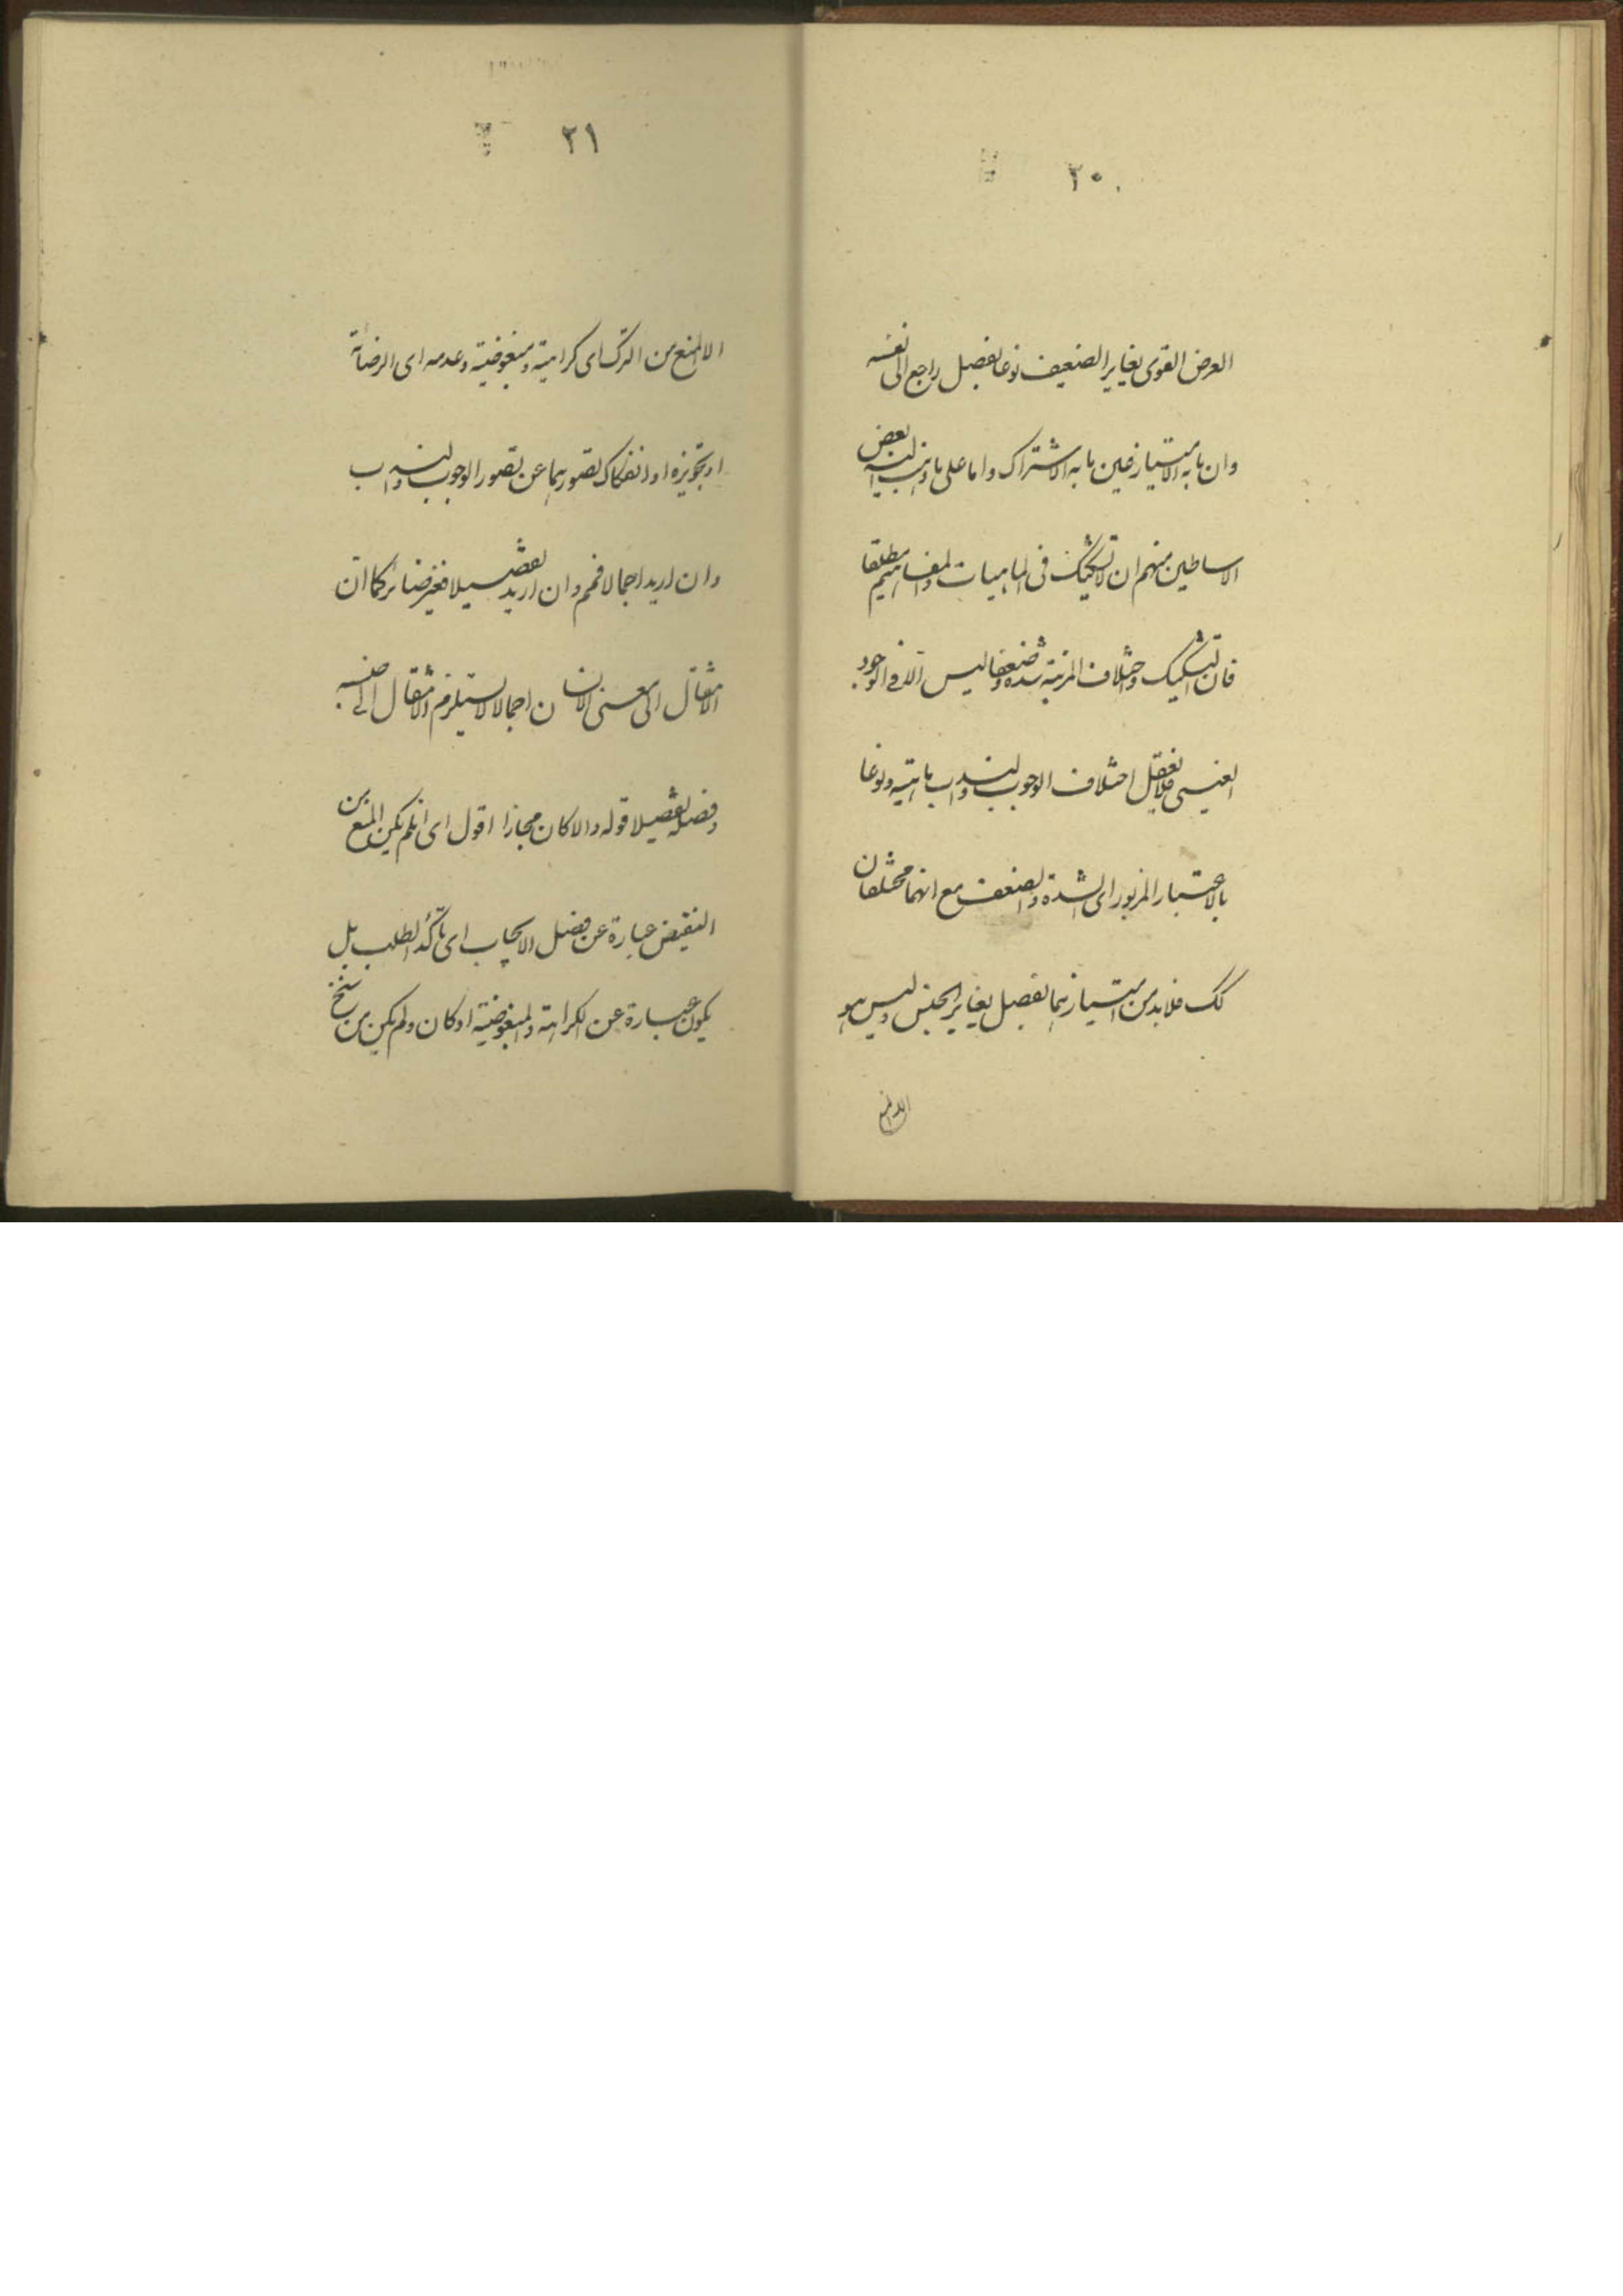 ٢٠
العرض القوى يغاير الضعيف نوعا بفصل راجع الى نفسه
وان ما به الامتياز عين ما به الاشتراك واما على ما ذهب اليه بعض
الاساطين منهم ان لا تشكيك فى الماهيات والمفاهيم مطلقا
فان التشكيك واختلاف المرتبة شدة وضعفا ليس الا فى الوجود
العينى فلا يعقل اختلاف الوجوب والندب ماهية ونوعا
بالاعتبار المزبور اى الشدة والضعف مع انهما مختلفان
كك فلابد من امتيازهما بفصل يغاير الجنس وليس هو
الا المنع
٢١
الا المنع من الترك اى كراهيته ومبغوضيته وعدمه اى الرضا به
او تجويزه او انفكاك تصورهما عن تصور الوجوب والندب
وان اريد اجمالا فمم وان اريد تفصيلا فغير ضائر كما ان
الانتقال الى معنى الانسان اجمالا لا يستلزم الانتقال الى جنسه
وفصله تفصيلا قوله والا كان مجازا اقول اى ان لم يكن المنع من
النقيض عبارة عن فصل الايجاب اى تأكد الطلب بل
يكون عبارة عن الكراهة والمبغوضية او كان ولم يكن من سنخ